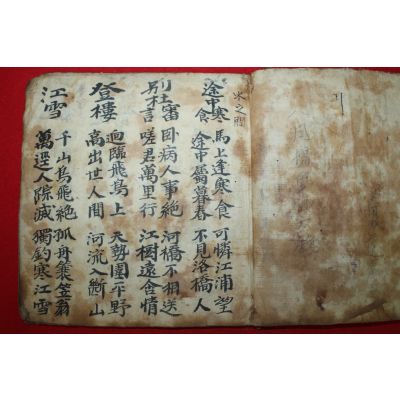 途中寒食
馬上逢寒食 可憐江浦望
途中屬暮春 不見洛橋人
別杜審言
臥病人事絶 河橋不相送
嗟君萬里行 江樹遠含情
登樓
迥臨飛鳥上 天勢圍平野
高出世人間 河流入斷山
江雪
千山鳥飛絶 孤舟簑笠翁
萬逕人踪滅 獨釣寒江雪